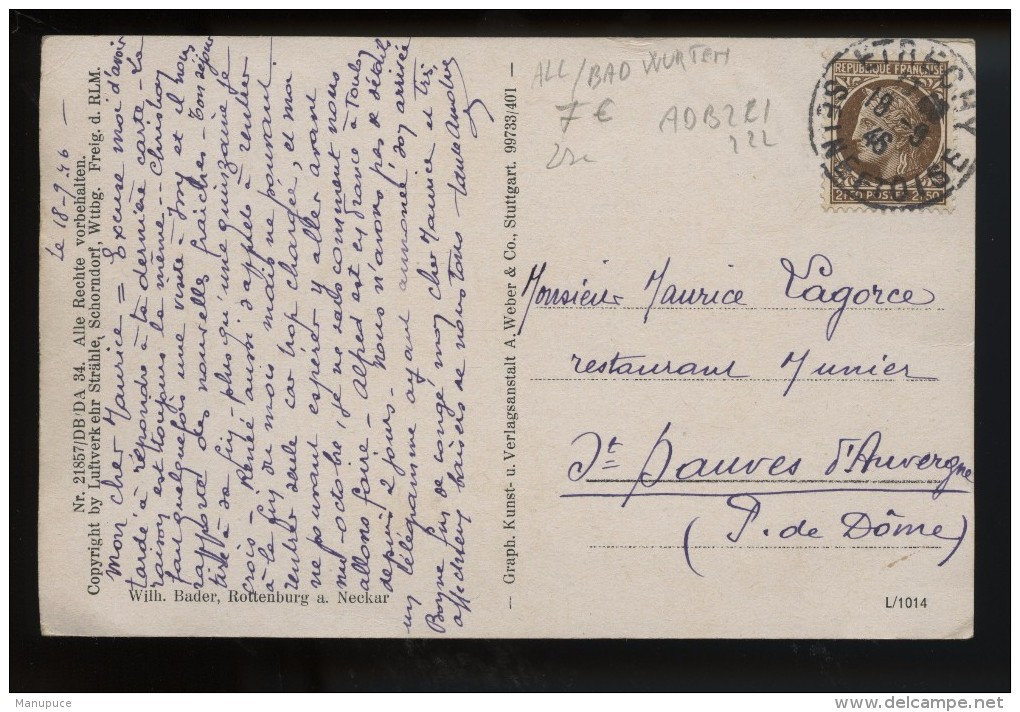 Nr. 21857/DB/DA 34. Alle Rechte vorbehalten.
Copyright by Luftverkehr Strähle, Schorndorf, Wttbg. Freig. d. RLM.
Le 18-9-46 –
Mon cher Maurice = Excuse moi d'avoir
tardé à répondre à ta dernière carte – La
raison est toujours la même – Christian
fait quelquefois une visite à Jony et il nous
rapporte des nouvelles fraîches – Ton séjour
tire à sa fin – plus qu'une quinzaine je
crois – Renée aussi s'apprête à rentrer
à la fin du mois mais ne pourrant
rentrer seule car trop chargée, et moi
ne pouvant espérer y aller avant
mi-octobre, je ne sais comment nous
allons faire – Alfred est en France à Toulon
depuis 2 jours – Nous n'avons pas de détail
un télégramme ayant annoncé son arrivée
Bonne fin de congé mon cher Maurice et
affectueux baisers de nous tous
Wilh. Bader, Rottenburg a. Neckar
— Graph. Kunst- u. Verlagsanstalt A. Weber & Co., Stuttgart. 99733/401 —
ALL/BAD WURTEM
7 €
ADB2R1
222
RÉPUBLIQUE FRANÇAISE
2F50 POSTES 2F50
ETRECHY
SEINE ET OISE
18 -9
46
Monsieur Maurice Lagorce
restaurant Munier
St Sauves d'Auvergne
(P. de Dôme)
L/1014
Manupuce
delcampe.net